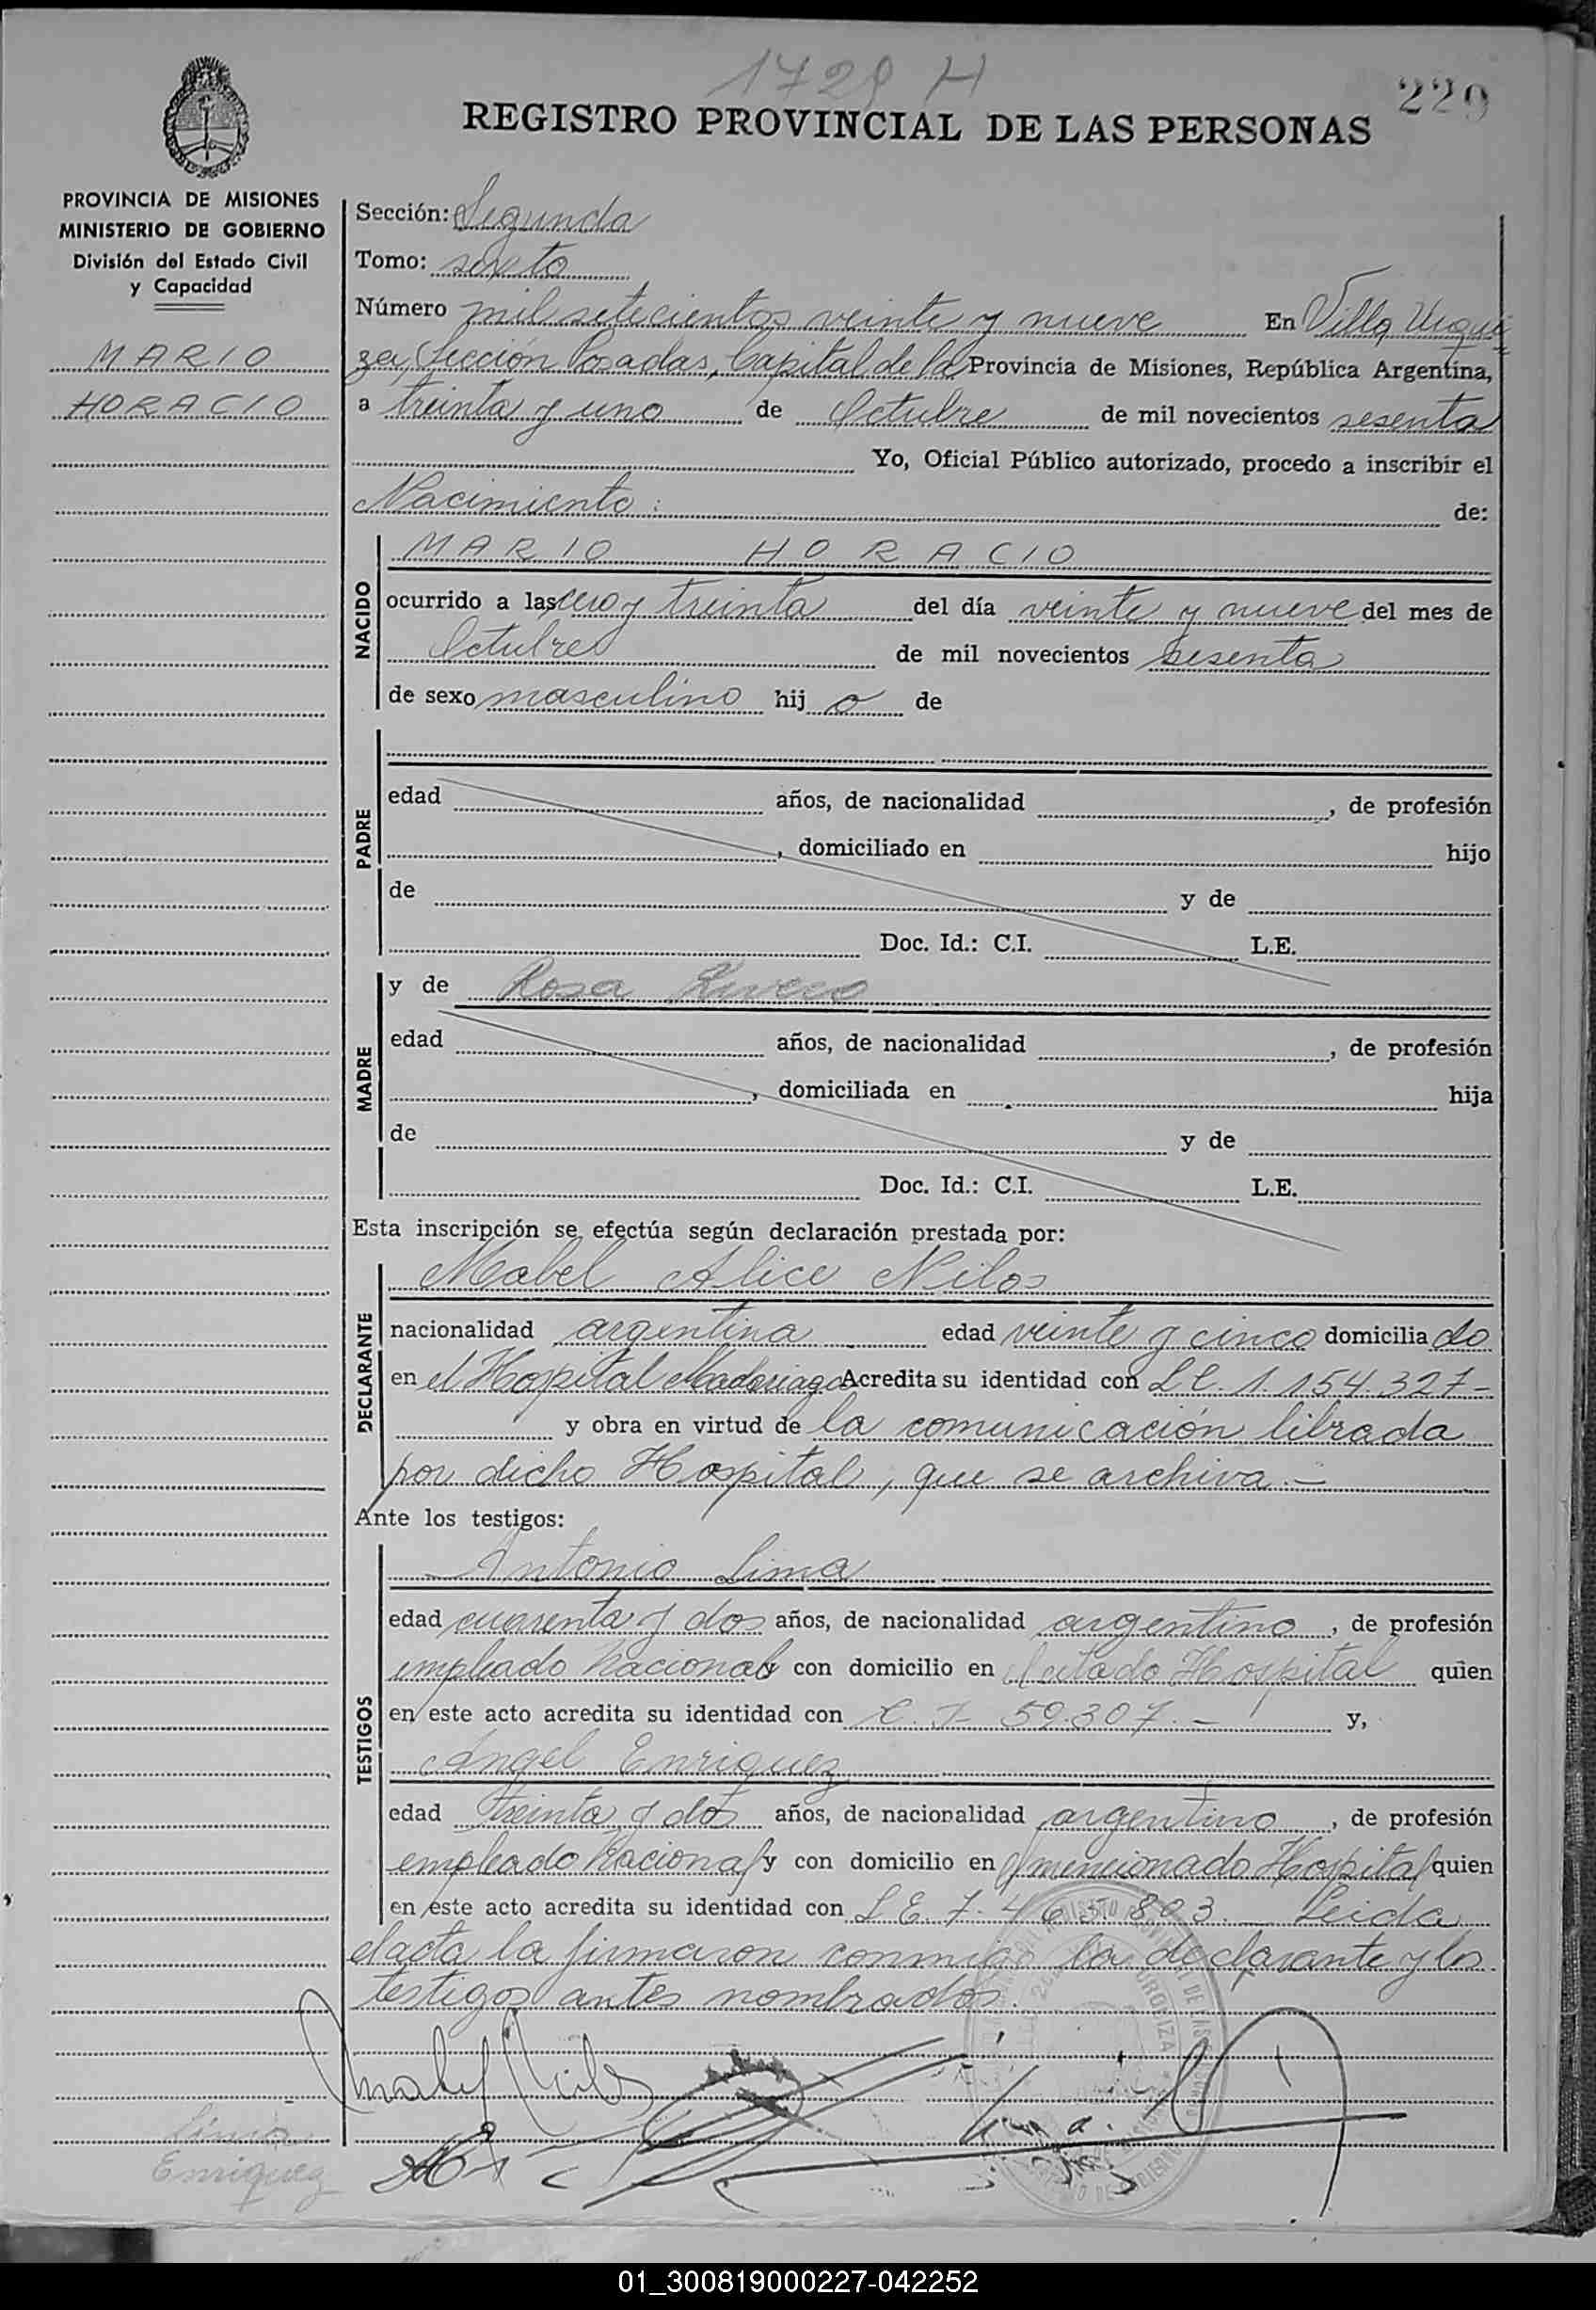 1729 H
229
REGISTRO PROVINCIAL DE LAS PERSONAS
PROVINCIA DE MISIONES
MINISTERIO DE GOBIERNO
División del Estado Civil
y Capacidad
MARIO
HORACIO
Sección: Segunda
Tomo: sexto
Número mil setecientos veinte y nueve En Villa Urqui
za, Sección Posadas, Capital de la Provincia de Misiones, República Argentina,
a treinta y uno de Octubre de mil novecientos sesenta
Yo, Oficial Público autorizado, procedo a inscribir el
Nacimiento: de:
NACIDO
MARIO HORACIO
ocurrido a las cero y treinta del día veinte y nueve del mes de
Octubre de mil novecientos sesenta
de sexo masculino hijo de
PADRE
edad años, de nacionalidad , de profesión
, domiciliado en hijo
de y de
Doc. Id.: C.I. L.E.
MADRE
y de Rosa
edad años, de nacionalidad , de profesión
, domiciliada en hija
de y de
Doc. Id.: C.I. L.E.
Esta inscripción se efectúa según declaración prestada por:
DECLARANTE
Mabel Alice Nilos
nacionalidad argentina edad veinte y cinco domiciliado
en el Hospital Madariaga Acredita su identidad con L.C. 1.154.327-
y obra en virtud de la comunicación librada
por dicho Hospital, que se archiva.-
Ante los testigos:
TESTIGOS
Antonio Lima
edad cuarenta y dos años, de nacionalidad argentino, de profesión
empleado Nacional y con domicilio en el citado Hospital quien
en este acto acredita su identidad con C.I. 59.307.- y,
Angel Enriquez
edad treinta y dos años, de nacionalidad argentino, de profesión
empleado Nacional y con domicilio en el mencionado Hospital quien
en este acto acredita su identidad con L.E. 7.463.803.- Leida
el acta la firmaron conmigo la declarante y los
testigos antes nombrados.
Lima
Enriquez
01_300819000227-042252